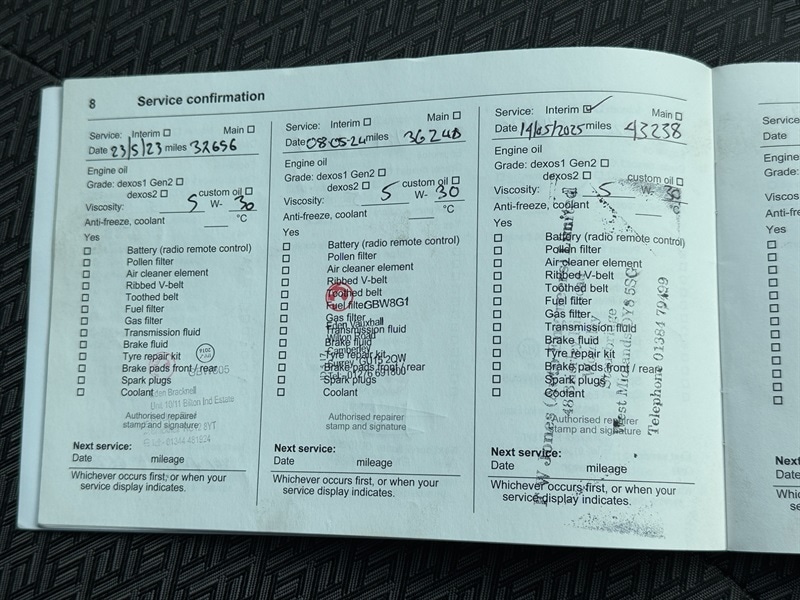 8 Service confirmation
Service: Interim ☐ Main ☐
Date 23/5/23 miles 32656
Engine oil
Grade: dexos1 Gen2 ☐
dexos2 ☐ custom oil ☐
Viscosity: 5 W- 30
Anti-freeze, coolant °C
Yes
☐ Battery (radio remote control)
☐ Pollen filter
☐ Air cleaner element
☐ Ribbed V-belt
☐ Toothed belt
☐ Fuel filter
☐ Gas filter
☐ Transmission fluid
☐ Brake fluid
☐ Tyre repair kit
☐ Brake pads front / rear
☐ Spark plugs
☐ Coolant
Eden Bracknell
Unit 10/11 Bilton Ind Estate
Authorised repairer
stamp and signature
Next service:
Date mileage
Whichever occurs first, or when your
service display indicates.
Service: Interim ☐ Main ☐
Date 08-05-24 miles 36248
Engine oil
Grade: dexos1 Gen2 ☐
dexos2 ☐ custom oil ☐
Viscosity: 5 W- 30
Anti-freeze, coolant °C
Yes
☐ Battery (radio remote control)
☐ Pollen filter
☐ Air cleaner element
☐ Ribbed V-belt
☐ Toothed belt
☐ Fuel filter
GBW8G1
☐ Gas filter
Eden Vauxhall
☐ Transmission fluid
☐ Brake fluid
Camberley
☐ Tyre repair kit
Surrey, GU15 2QW
☐ Brake pads front / rear
Tel: 01276 691600
☐ Spark plugs
☐ Coolant
Authorised repairer
stamp and signature
Next service:
Date mileage
Whichever occurs first, or when your
service display indicates.
Service: Interim ☑ Main ☐
Date 14/05/2025 miles 43238
Engine oil
Grade: dexos1 Gen2 ☐
dexos2 ☐ custom oil ☐
Viscosity: 5 W- 30
Anti-freeze, coolant °C
Yes
☐ Battery (radio remote control)
☐ Pollen filter
☐ Air cleaner element
☐ Ribbed V-belt
☐ Toothed belt
☐ Fuel filter
☐ Gas filter
☐ Transmission fluid
☐ Brake fluid
☐ Tyre repair kit
☐ Brake pads front / rear
☐ Spark plugs
☐ Coolant
Authorised repairer
stamp and signature
W Jones Limited
West Midlands DY8 5SG
Telephone 01384 79499
Next service:
Date mileage
Whichever occurs first, or when your
service display indicates.
Service:
Date
Engine
Grade:
Yes
Date